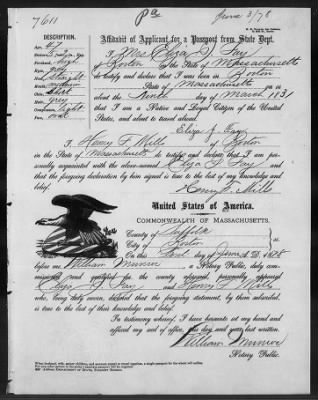 7611
pa
June 3/78
DESCRIPTION.
Age, 47
high
grey
straight
medium
short
grey
light
oval
Affidavit of Applicant for a Passport from State Dept.
I Mrs Eliza J. Fay
of Boston in the State of Massachusetts
do testify and declare that I was born in Boston
State of Massachusetts on or
about the day of March 1831
that I am a Native and Loyal Citizen of the United
States, and about to travel abroad.
Eliza J. Fay
I, Henry F. Mills of Boston
in the State of Massachusetts do testify and declare that I am per-
sonally acquainted with the above-named Eliza J. Fay and
that the foregoing declaration by him signed is true to the best of my knowledge and
belief.
Henry F. Mills
United States of America.
COMMONWEALTH OF MASSACHUSETTS.
County of Suffolk
City of Boston
On this first day of June A.D. 1878
before me William Munroe a Notary Public, duly com-
missioned and qualified for the county aforesaid, personally appeared
Eliza J. Fay and Henry F. Mills
who, being duly sworn, declared that the foregoing statement, by them subscribed,
is true to the best of their knowledge and belief.
In testimony whereof, I have hereunto set my hand and
affixed my seal of office, this day and year last written.
William Munroe
Notary Public.